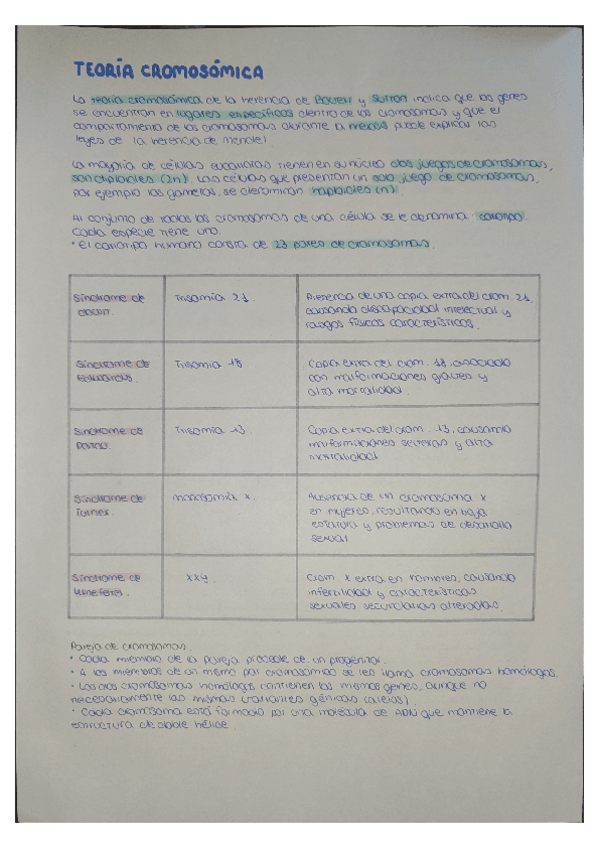 TEORÍA CROMOSÓMICA
La teoría cromosómica de la herencia de Boveri y Sutton indica que los genes
se encuentran en lugares específicos dentro de los cromosomas y que el
comportamiento de los cromosomas durante la meiosis puede explicar las
leyes de la herencia de Mendel
La mayoría de células eucariotas tienen en su núcleo dos juegos de cromosomas,
son diploides (2n). Las células que presentan un solo juego de cromosomas,
por ejemplo los gametos, se denominan haploides (n).
Al conjunto de todos los cromosomas de una célula se le denomina cariotipo.
Cada especie tiene uno.
• El cariotipo humano consta de 23 pares de cromosomas.
Síndrome de
Down.
Trisomía 21.
Presencia de una copia extra del crom. 21,
causando discapacidad intelectual y
rasgos físicos característicos.
Síndrome de
Edwards.
Trisomía 18
Copia extra del crom. 18, asociado
con malformaciones graves y
alta mortalidad.
Síndrome de
Patau.
Trisomía 13
Copia extra del crom. 13, causando
malformaciones severas y alta
mortalidad
Síndrome de
Turner.
monosomía x.
Ausencia de un cromosoma x
en mujeres, resultando en baja
estatura y problemas de desarrollo
sexual
Síndrome de
Klinefelter.
XXY.
Crom X extra en hombres, causando
infertilidad y características
sexuales secundarias alteradas.
Pareja de cromosomas.
• Cada miembro de la pareja procede de un progenitor.
• A los miembros de un mismo par cromosómico se les llama cromosomas homólogos.
• Los dos cromosomas homólogos contienen los mismos genes, aunque no
necesariamente las mismas variantes génicas (alelos).
• Cada cromosoma está formado por una molécula de ADN que mantiene la
estructura de doble hélice.